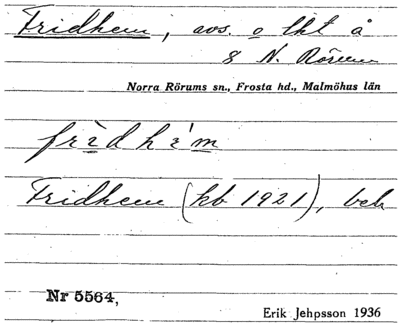 Fridhem, avs. o lht å
8 N. Rörum
Norra Rörums sn., Frosta hd., Malmöhus län
frìdhèm
Fridhem (kb 1921), beb
Nr 5564,
Erik Jehpsson 1936